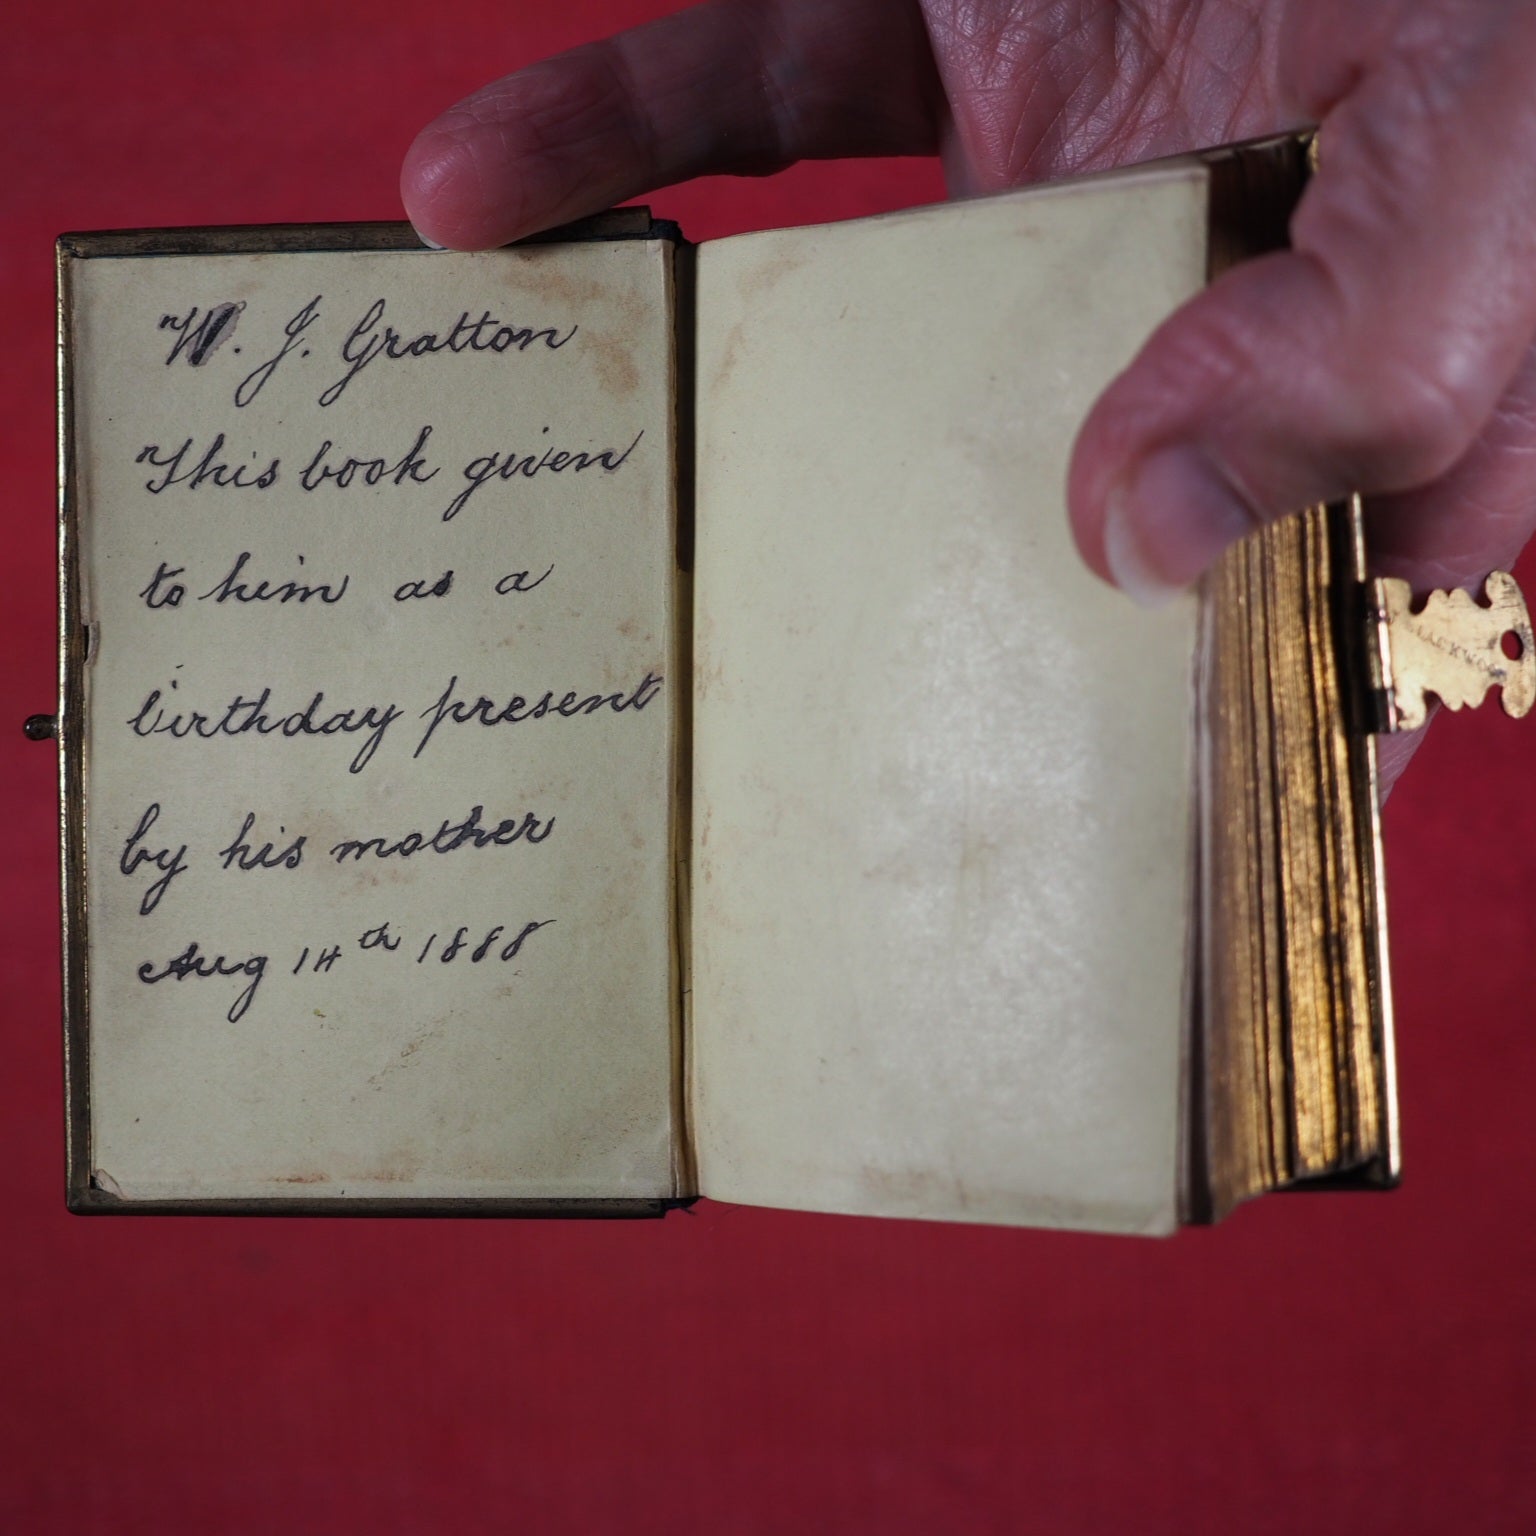 W. J. Gratton
This book given
to him as a
birthday present
by his mother
Aug 14th 1888